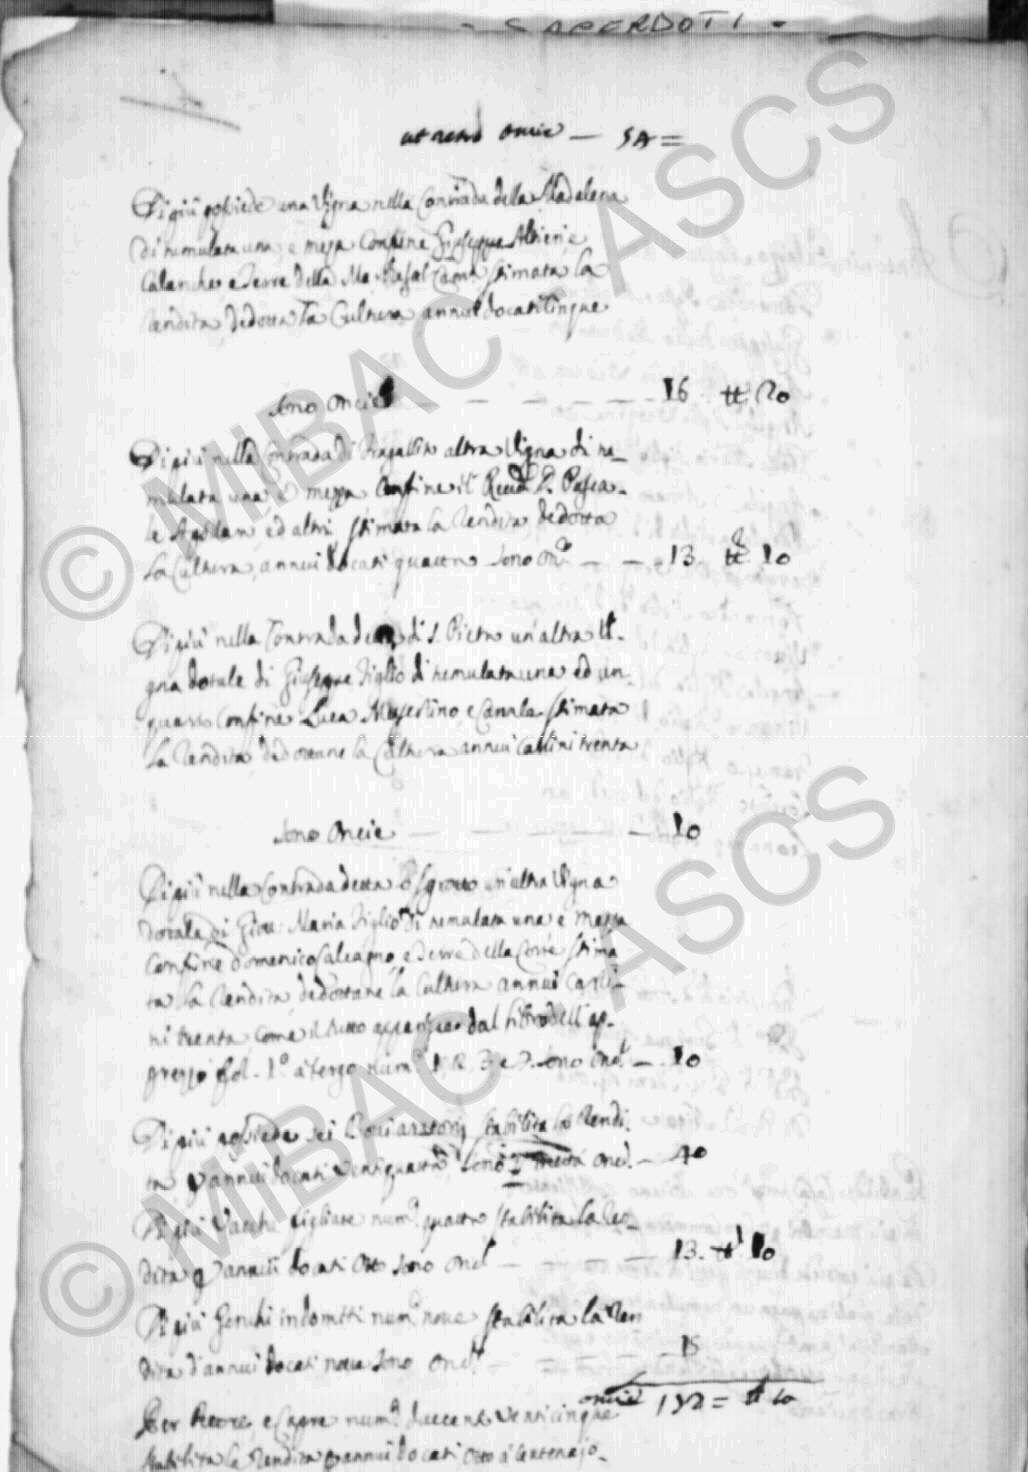 - SACERDOTI -
ut retro oncie — 54 =
Di più possiede una Vigna nella Contrada della Madalena
di tumulata una, e meza Confine Giuseppe Altieri, e
Calanche, e Terre della stimata la
rendita dedotta la Cultura annui docati Cinque
sono oncie — 16 tt 20
Di più nella Contrada di altra Vigna di tu-
mulata una e mezza Confine il Revd. D. Pasca-
le ed altri stimata la rendita, dedotta
la Cultura, annui docati quattro sono onc. — 13. tt 10
Di più nella Contrada detta di S. Pietro un'altra Vi-
gna dotale di Giuseppe Figlio di tumulata una ed un
quarto Confine Luca e Canala stimata
la rendita dedottane la Cultura annui Carlini trenta
sono oncie — 10
Di più nella Contrada detta un'altra Vigna
dotale di Giov: Maria Figlio di tumulata una e mezza
Confine Domenico Calcagno, e Terre della Corte stima
ta la rendita dedottane la Cultura annui Carli-
ni trenta come il tutto apparisce dal libro dell'ap-
prezzo fol. 1º a tergo num. sono onc. — 10
Di più possiede sei Bovi aratorij stabilita la rendi-
ta annui docati ventiquattro sono onc. — 40
Di più Vacche figliate num. quattro stabilita la ren-
dita annui docati otto sono onc. — 13. tt 10
Di più Genchi indomiti num. nove stabilita la ren
dita d'annui docati nove sono onc. — 15
oncie 152 = tt 10
Per Pecore, e Capre num. duecento venticinque
stabilita la rendita annui docati otto a centenajo.
© MiBAC - ASCS
© MiBAC - ASCS